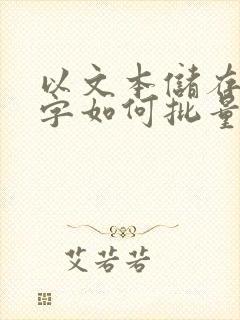 以文本儲存
字如何批量
艾若若